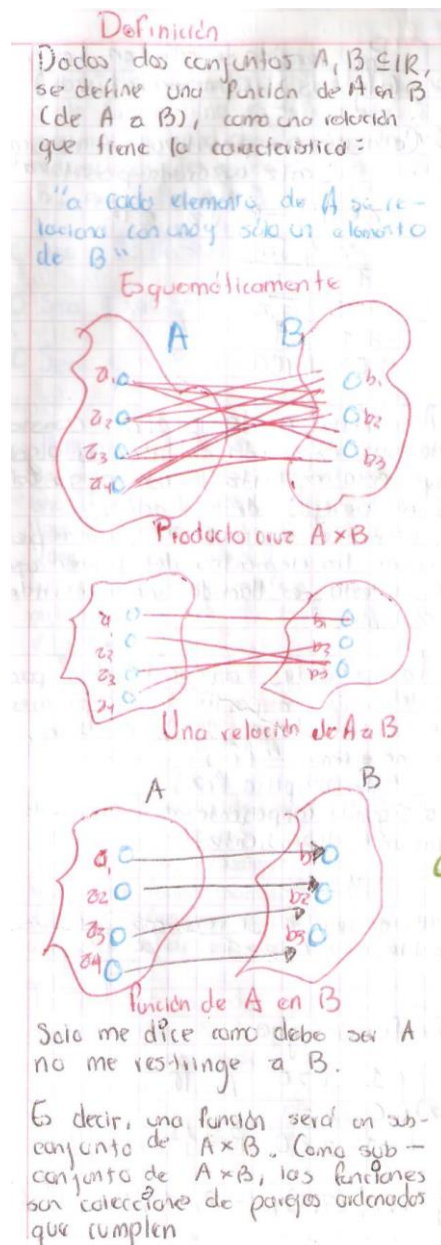 Definición
Dados dos conjuntos A, B ⊆ IR,
se define una función de A en B
(de A a B), como una relación
que tiene la característica:
"a cada elemento de A se re-
laciona con uno y sólo un elemento
de B"
Esquemáticamente
A B
a1 b1
a2 b2
a3 b3
a4
Producto cruz A×B
a1
a2
a3
a4
Una relación de A a B
A B
a1 b1
a2 b2
a3 b3
a4
función de A en B
Solo me dice como debe ser A
no me restringe a B.
Es decir, una función será un sub-
conjunto de A×B. Como sub-
conjunto de A×B, las funciones
son colecciones de parejas ordenadas
que cumplen